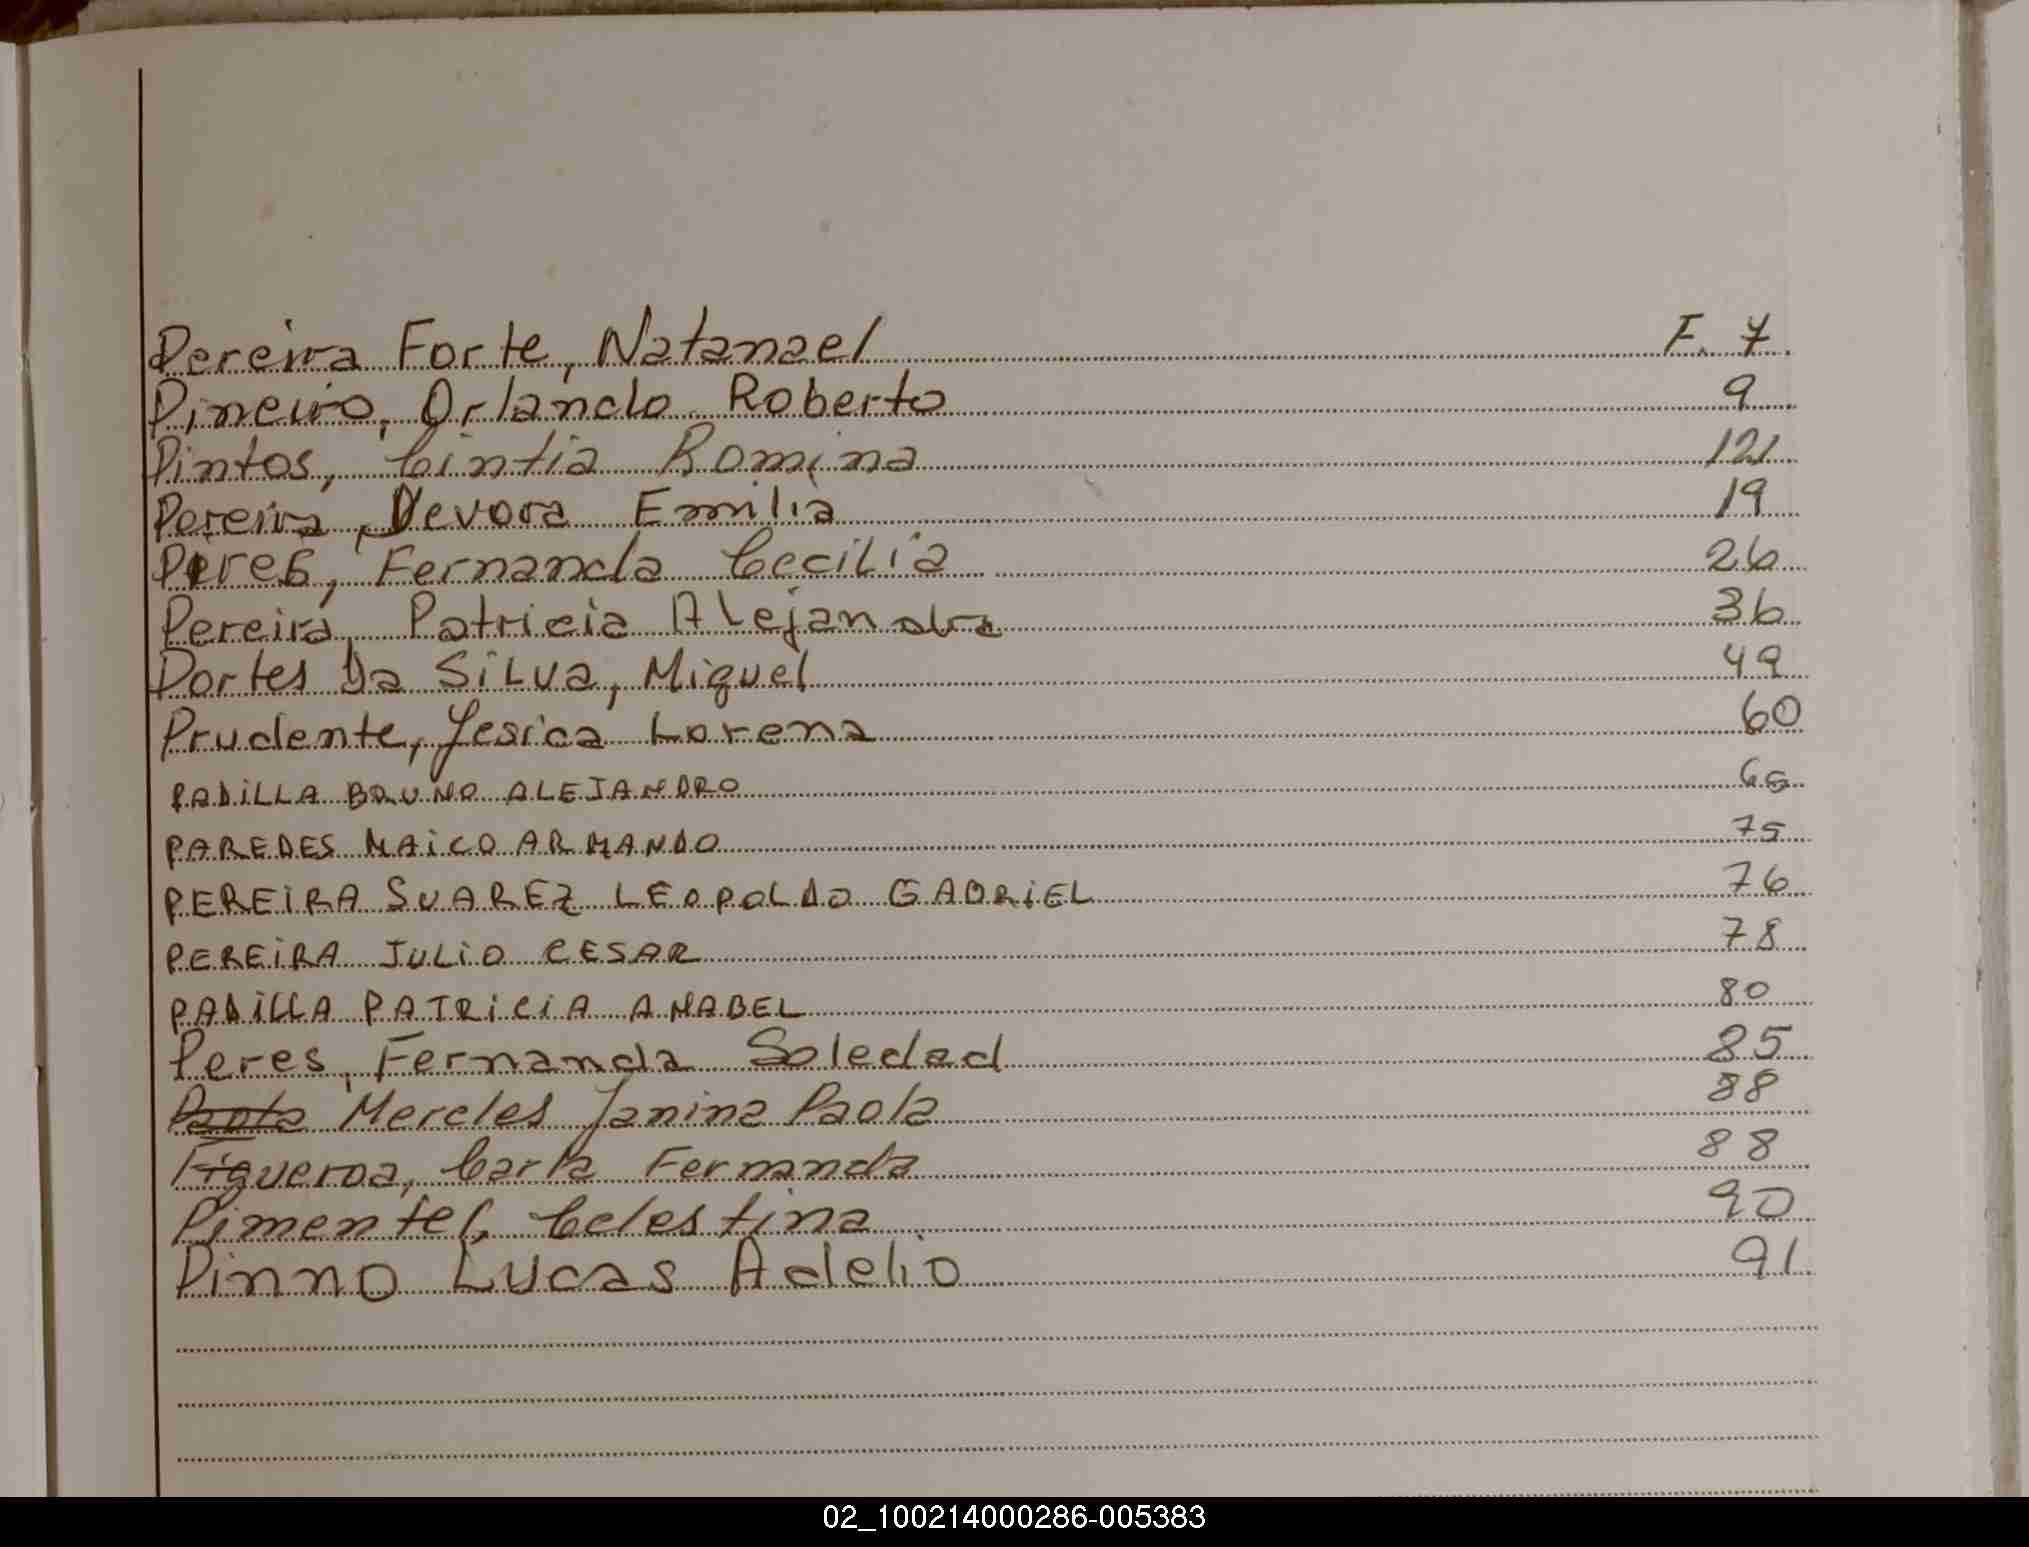 Pereira Forte, Natanael F. 7
Pineiro, Orlando Roberto 9
Pintos, Cintia Romina 121
Pereira, Devora Emilia 19
Peres, Fernanda Cecilia 26
Pereira, Patricia Alejandra 36
Portes Da Silva, Miguel 49
Prudente, Jesica Lorena 60
PADILLA BRUNO ALEJANDRO 66
PAREDES MAICO ARMANDO 75
PEREIRA SUAREZ LEOPOLDO GABRIEL 76
PEREIRA JULIO CESAR 78
PADILLA PATRICIA ANABEL 80
Peres, Fernanda Soledad 85
Mereles Janina Paola 88
Figueroa, Carla Fernanda 88
Pimentel, Celestina 90
Pinno Lucas Adelio 91
02_100214000286-005383